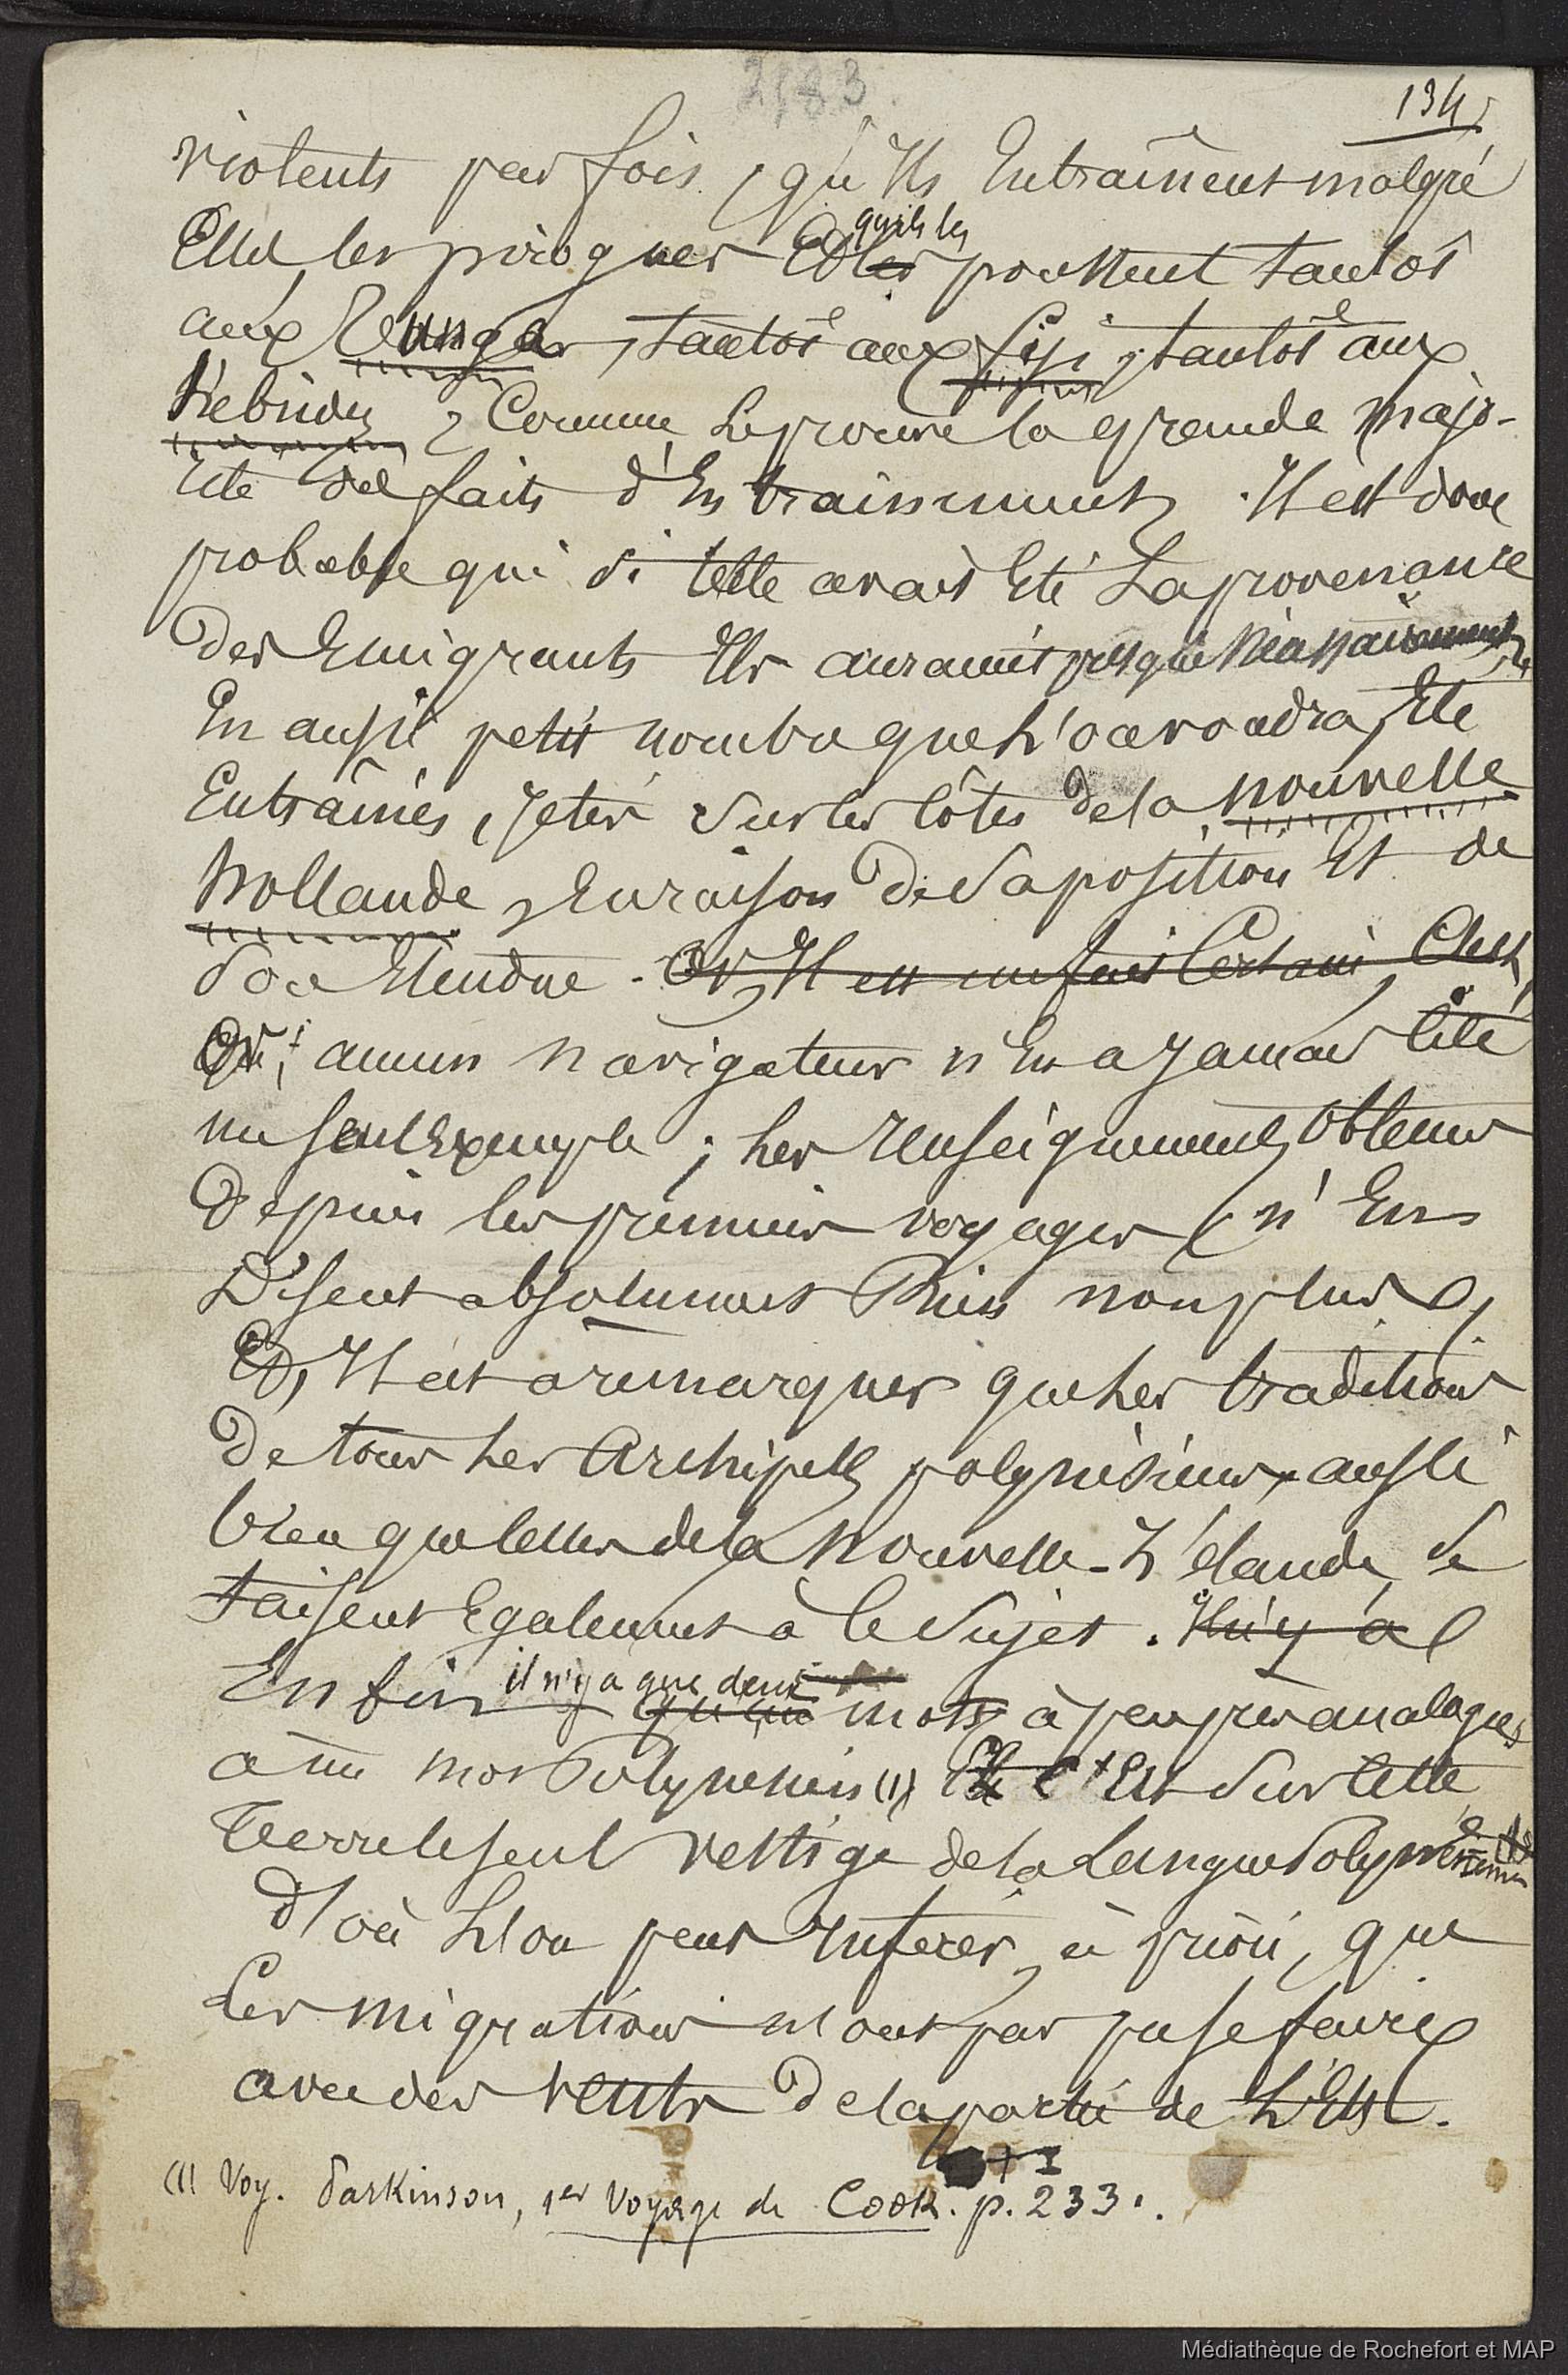 2183
134
violents parfois, qu'ils Entraînent malgré
Elles, les pirogues Et qu'ils les poussent tantôt
aux Tunga, tantôt aux Fiji, tantôt aux
Hébrides, Comme Le prouve la grande majo-
rité des faits d'Entrainements. Il est donc
probable que si telle avait Eté La provenance
Des Emigrants Ils auraient presque nécessairement,
En aussi petit nombre que L'on voudra, Eté
Entraînés, Jetés sur les Côtes de la Nouvelle
Hollande, En raison De Sa position Et de
Son Etendue. Or, Il est un fait Certain, C'est,
Or, aucun navigateur n'En a Jamais Cité
un seul Exemple ; Les renseignements Obtenus
Depuis les premiers voyages, n'En
Disent absolument Rien non plus,
Et, Il est à remarquer que Les traditions
De tous Les Archipels polynésiens, aussi
bien que Celles de la Nouvelle-Zélande, se
taisent Egalement à Ce Sujet. Il n'y a
Enfin il n'y a que deux qu'un mots à peu près analogues
à un mot Polynésien (1) Et C'Est Sur Cette
Terre le seul vestige de la Langue Polynésienne
D'où L'on peut inférer, à priori, que
Les migrations n'ont pas pu se faire
avec des vents De la partie de L'Est.
(1) Voy. Parkinson, 1er Voyage de Cook. p. 233.
Médiathèque de Rochefort et MAP